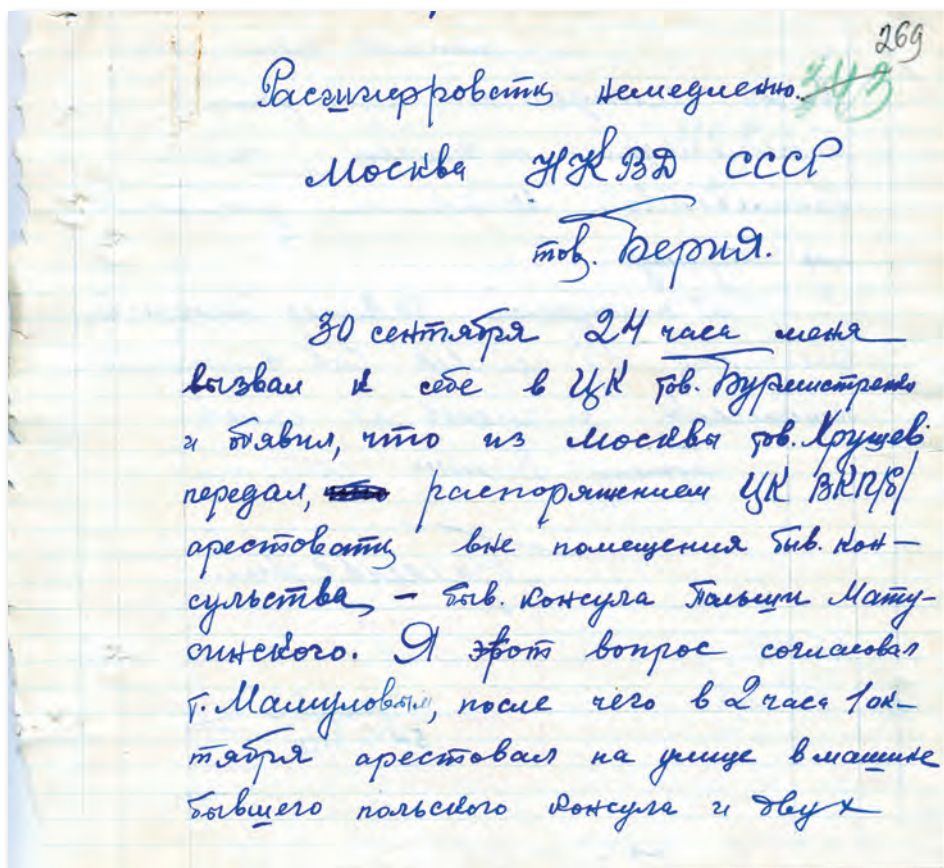 269
343
Расшифровать немедленно.
Москва НКВД СССР
тов. Берия.
30 сентября 24 часа меня
вызвал к себе в ЦК тов. Бурмистренко
и об'явил, что из Москвы тов. Хрущев
передал, что распоряжением ЦК ВКП/б/
арестовать вне помещения быв. кон-
сульства, – быв. консула Польши Мату-
синского. Я этот вопрос согласовал
т. Мамуловым, после чего в 2 часа 1 ок-
тября арестовал на улице в машине
бывшего польского консула и двух